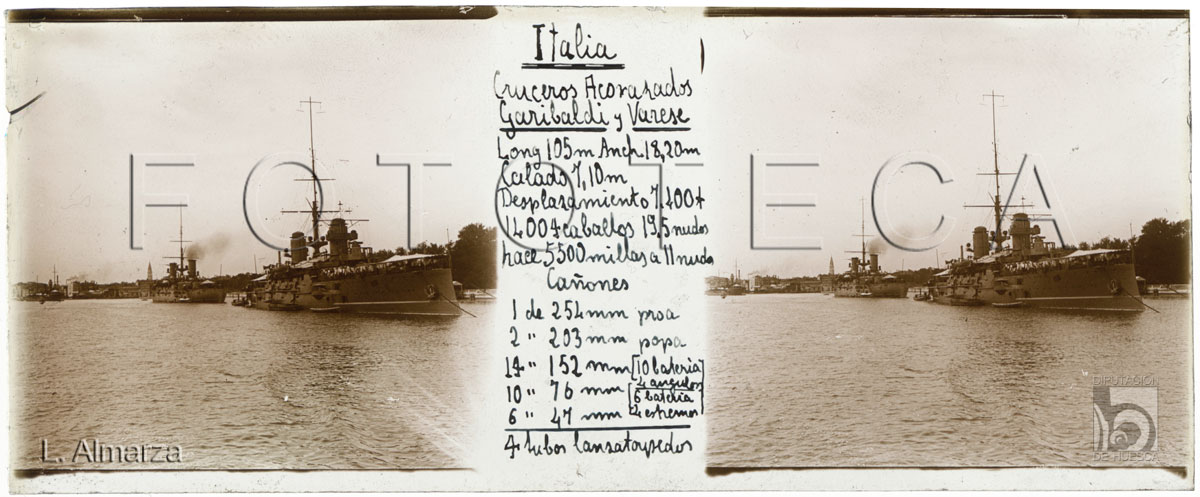 Italia
Cruceros Acorasados
Garibaldi y Varese
Long 105m Anch. 18,20m
Calado 7,10m
Desplasamiento 7.400t
1400t caballos 19,5 nudos
hace 5500 millas a 11 nudos
Cañones
1 de 254 mm proa
2 " 203 mm popa
14 " 152 mm [10 bateria
4 angulos]
10 " 76 mm [6 bateria
4 estremos]
6 " 47 mm
4 tubos lansatorpedos
FOTOTECA
L. Almarza
DIPUTACIÓN
DE HUESCA